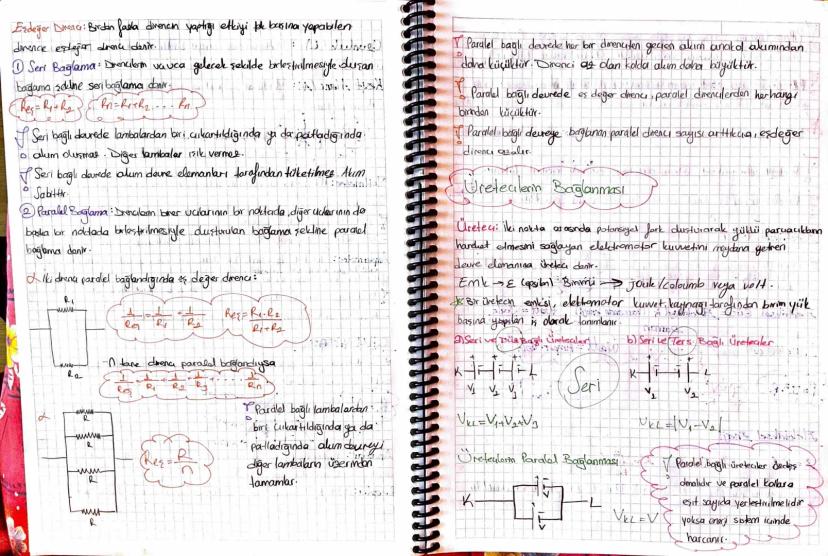 Eşdeğer Direnç: Birden fazla direncin yaptığı etkiyi tek başına yapabilen
dirence eşdeğer direnç denir.
① Seri Bağlama: Dirençlerin uc uca gelecek şekilde birleştirilmesiyle oluşan
bağlama şekline seri bağlama denir.
Reş = R1 + R2 Rn = R1 + R2 ..... Rn
Seri bağlı devrede lambalardan biri çıkartıldığında ya da patladığında
akım oluşmaz. Diğer lambalar ışık vermez.
Seri bağlı devrede akım devre elemanları tarafından tüketilmez. Akım
Sabittir.
② Paralel Bağlama: Dirençlerin birer uclarının bir noktada, diğer uclarının da
başka bir noktada birleştirilmesiyle oluşturulan bağlama şekline paralel
bağlama denir.
İki direnç paralel bağlandığında eş değer direnci:
R1
R2
1/Reş = 1/R1 + 1/R2 Reş = R1.R2 / R1+R2
n tane direnç paralel bağlandıysa
1/Reş = 1/R1 + 1/R2 + 1/R3 + ..... 1/Rn
R
R
R
R
Reş = R/n
Paralel bağlı lambalardan
biri çıkartıldığında ya da
patladığında akım devreyi
diğer lambaların üzerinden
tamamlar.
Paralel bağlı devrede her bir dirençten geçen akım anakol akımından
daha küçüktür. Direnci az olan kolda akım daha büyüktür.
Paralel bağlı devrede eş değer direnç, paralel dirençlerden herhangi
birinden küçüktür.
Paralel bağlı devreye bağlanan paralel direnç sayısı arttıkça, eşdeğer
direnç azalır.
Üreteçlerin Bağlanması
Üreteç: İki nokta arasında potansiyel fark oluşturarak yüklü parçacıkların
hareket etmesini sağlayan elektromotor kuvvetini meydana getiren
devre elemanına üreteç denir.
Emk → ε (epsilon) Birimi → joule/coloumb veya volt.
Bir üretecin emksı, elektromotor kuvvet kaynağı tarafından birim yük
başına yapılan iş olarak tanımlanır.
a) Seri ve Düz Bağlı Üreteçler b) Seri ve Ters Bağlı Üreteçler
K + - + - + - L
V1 V2 V3
Seri
K L
V1 V2
VKL = V1+V2+V3
VKL = |V1 - V2|
Üreteçlerin Paralel Bağlanması
K L
V
V
VKL = V
Paralel bağlı üreteçler özdeş
olmalıdır ve paralel kollara
eşit sayıda yerleştirilmelidir
yoksa enerji sistem içinde
harcanır.